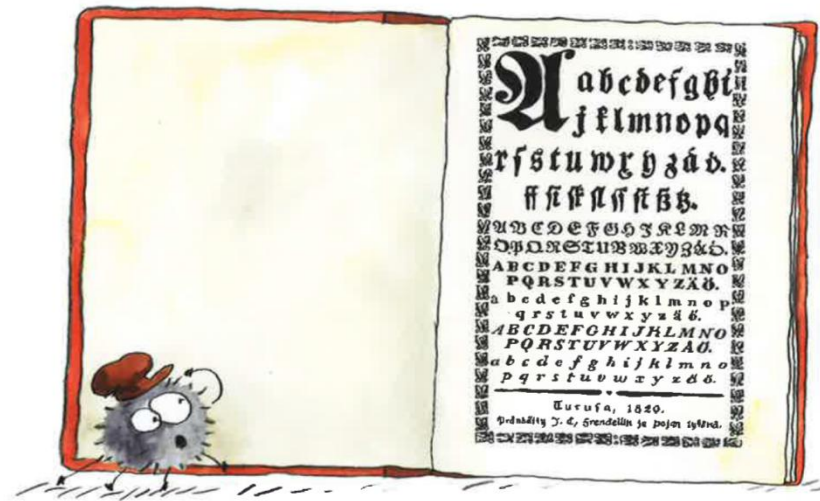 A abcdefghi
jklmnopq
rſstuwxyzåäö.
ff ſi ſk ſl ſſ ſt ß tz.
ABCDEFGHIJKLMN
OPQRSTUVWXYZÅÄÖ.
ABCDEFGHIJKLMNO
PQRSTUVWXYZÄÖ.
abcdefghijklmnop
qrstuvwxyzäö.
ABCDEFGHIJKLMNO
PQRSTUVWXYZÄÖ.
abcdefghijklmno
pqrstuvwxyzäö.
Turusa, 1820.
J. C. Frendellin ja pojan tykönä.